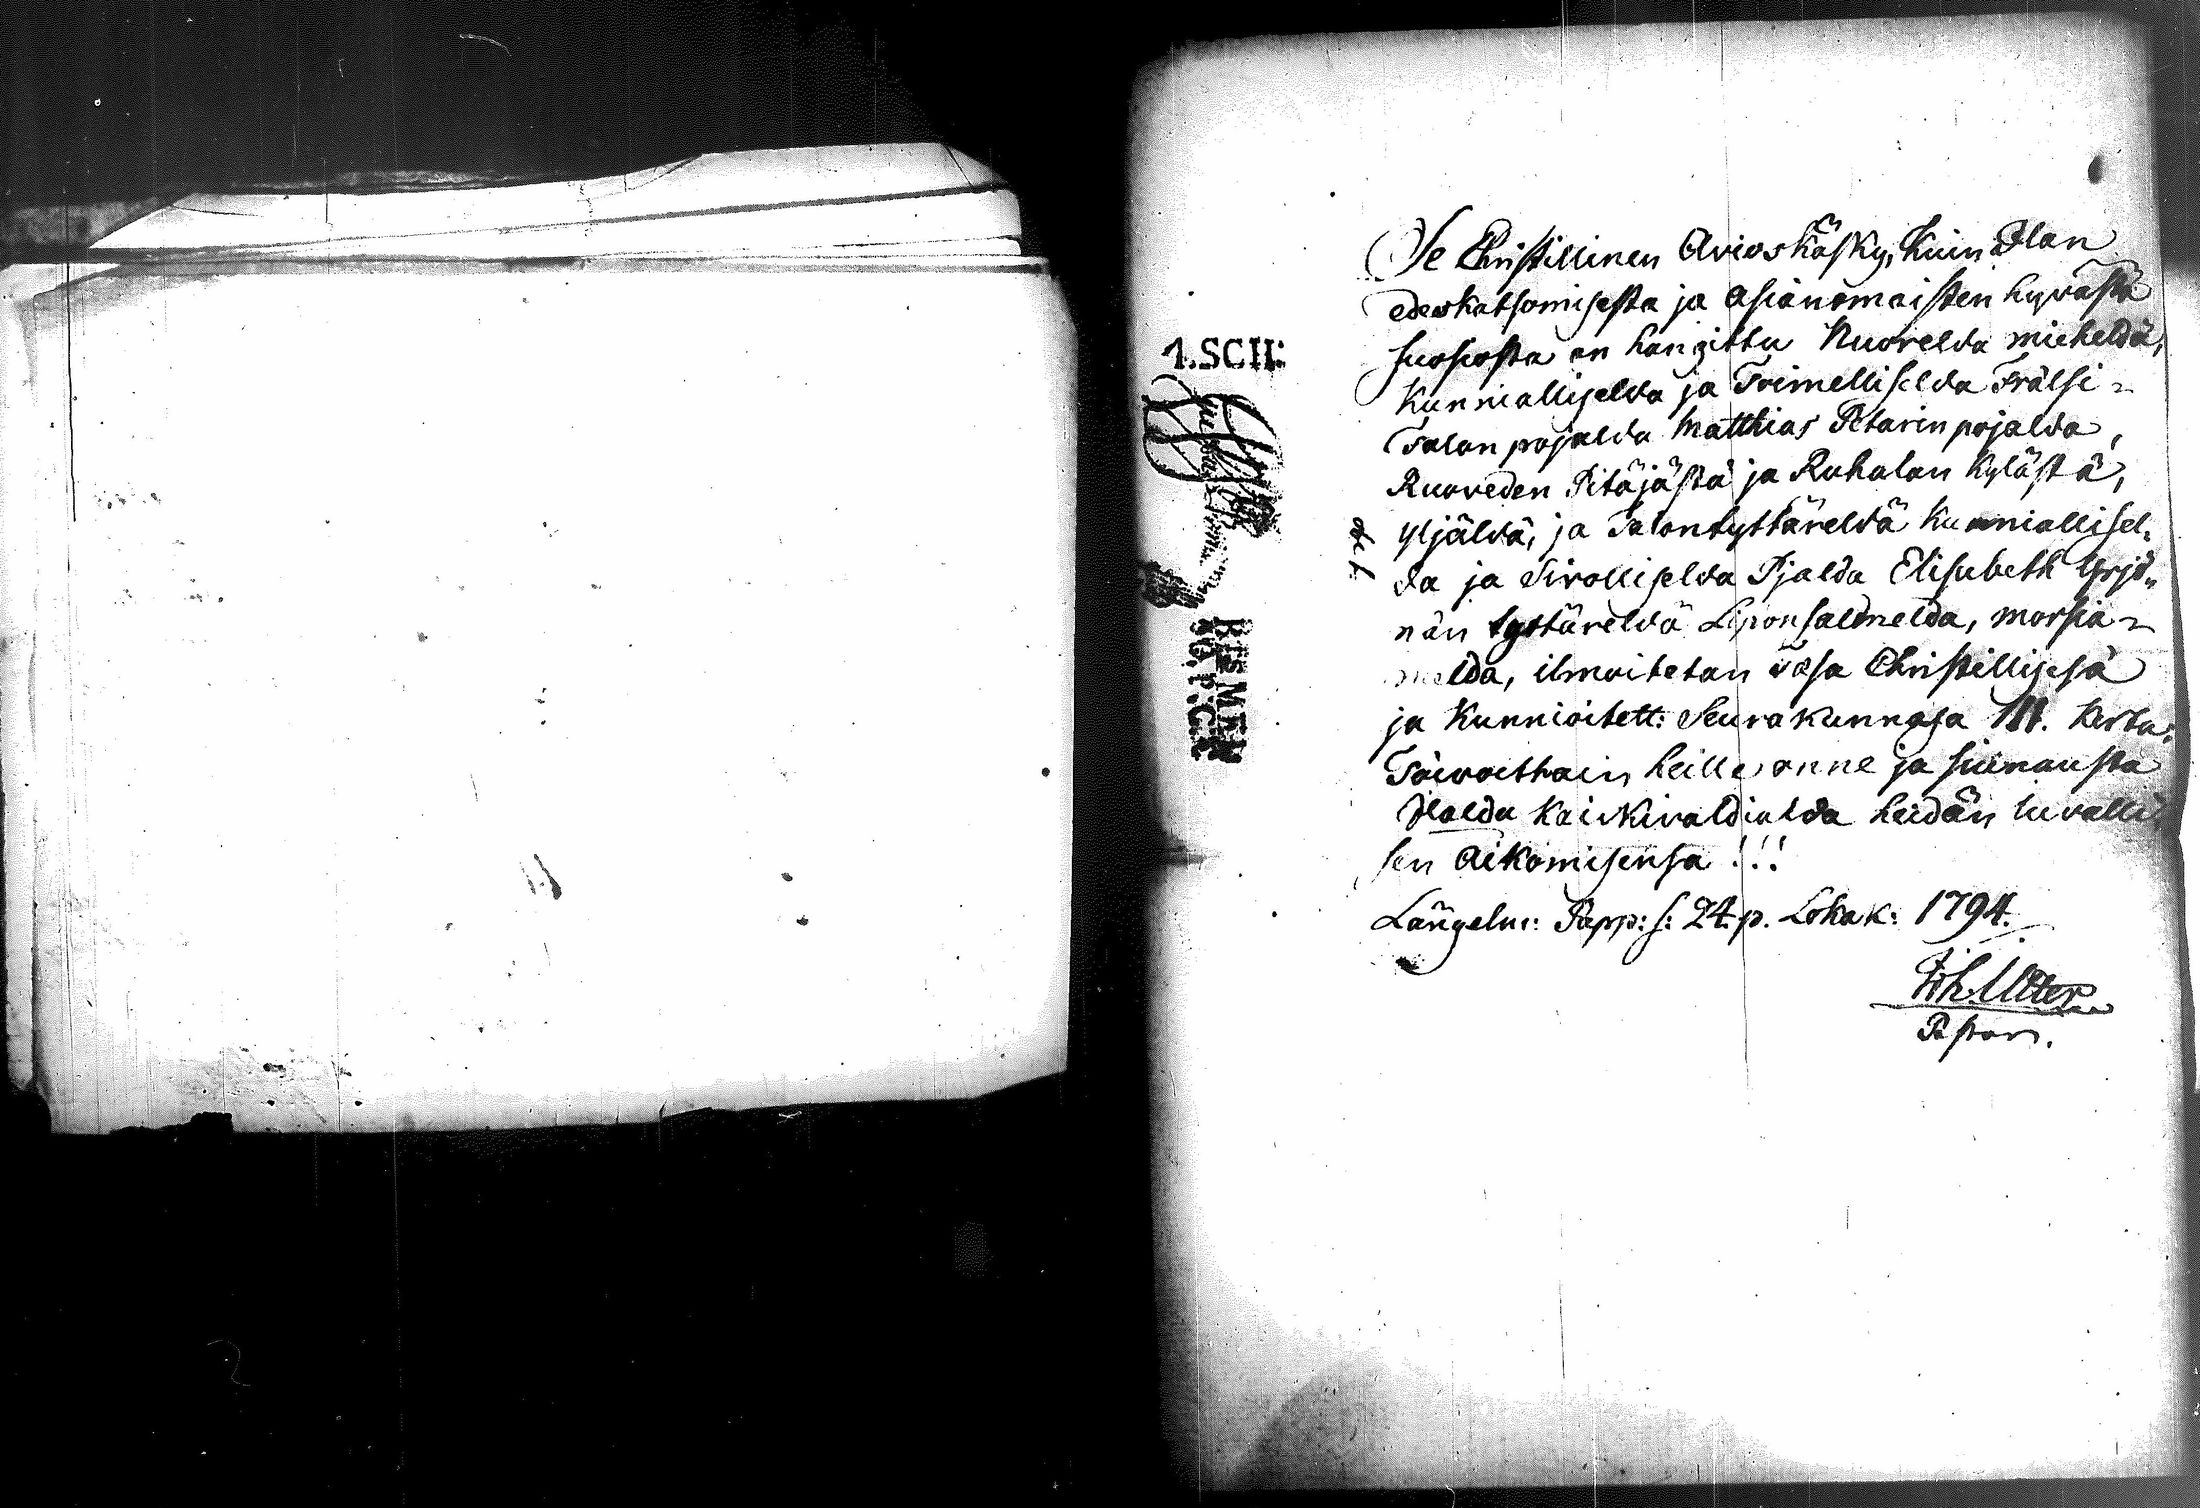 1.SCH:
Se Christillinen Avioskäsky, kuin Jlan
edeskatsomisesta ja asianomaisten hyvästä
suosiosta on hangittu Nuorelda mieheldä,
Kunnialliselda ja Toimelliselda Frälsi=
Talonpojalda Matthias Petarinpojalda,
Ruoveden Pitäjästä ja Ruhalan kylästä,
Yljäldä, ja Talontyttäreldä Kunniallisel,
da ja Sivolliselda Pjalda Elisabeth Yrjö„
nän tyttäreldä Liponsalmelda, morsia=
melda, ilmoitetan täsa Christillisesä
ja Kunnioitett: Seurakunnasa III. kerta:
Toivottain heille onne ja siunausta
Jlalda Kaickivaldialda heidän luvalli
sen Aikomisensa!!!
Längelm: Papp: s: 24. p. Lokak: 1794.
Pastori.